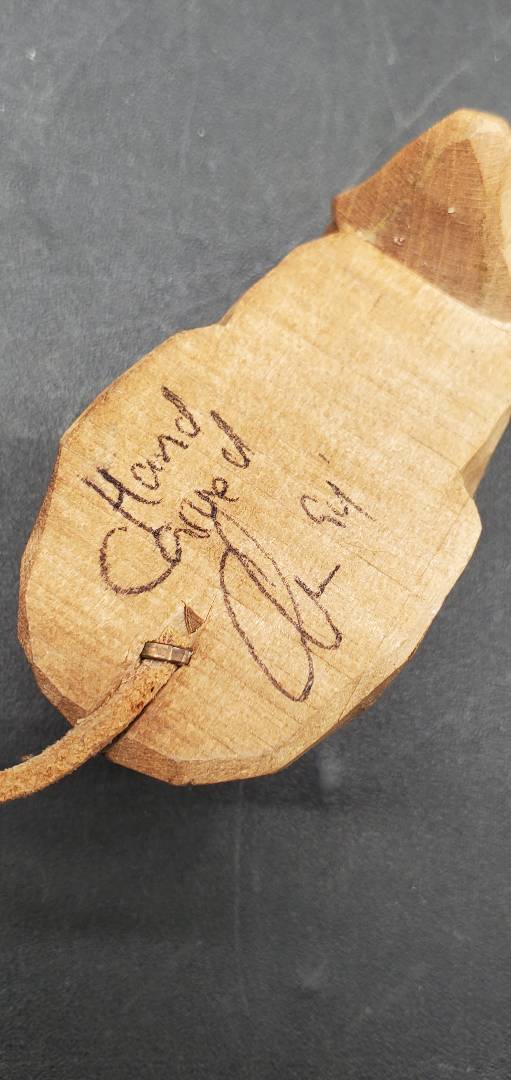 Hand
Carved
94'